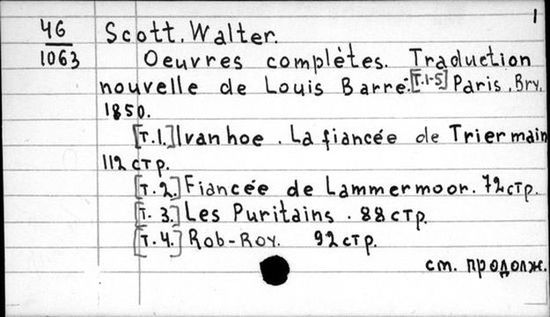 1
46 Scott. Walter.
1063 Oeuvres complètes. Traduction
nouvelle de Louis Barré. [т.1-5] Paris. Bry.
1850.
[т.1.] Ivanhoe. La fiancée de Triermain
112 стр.
[т.2.] Fiancée de Lammermoor. 72 стр.
[т.3.] Les Puritains. 88 стр.
[т.4.] Rob-Roy. 92 стр.
см. продолж.